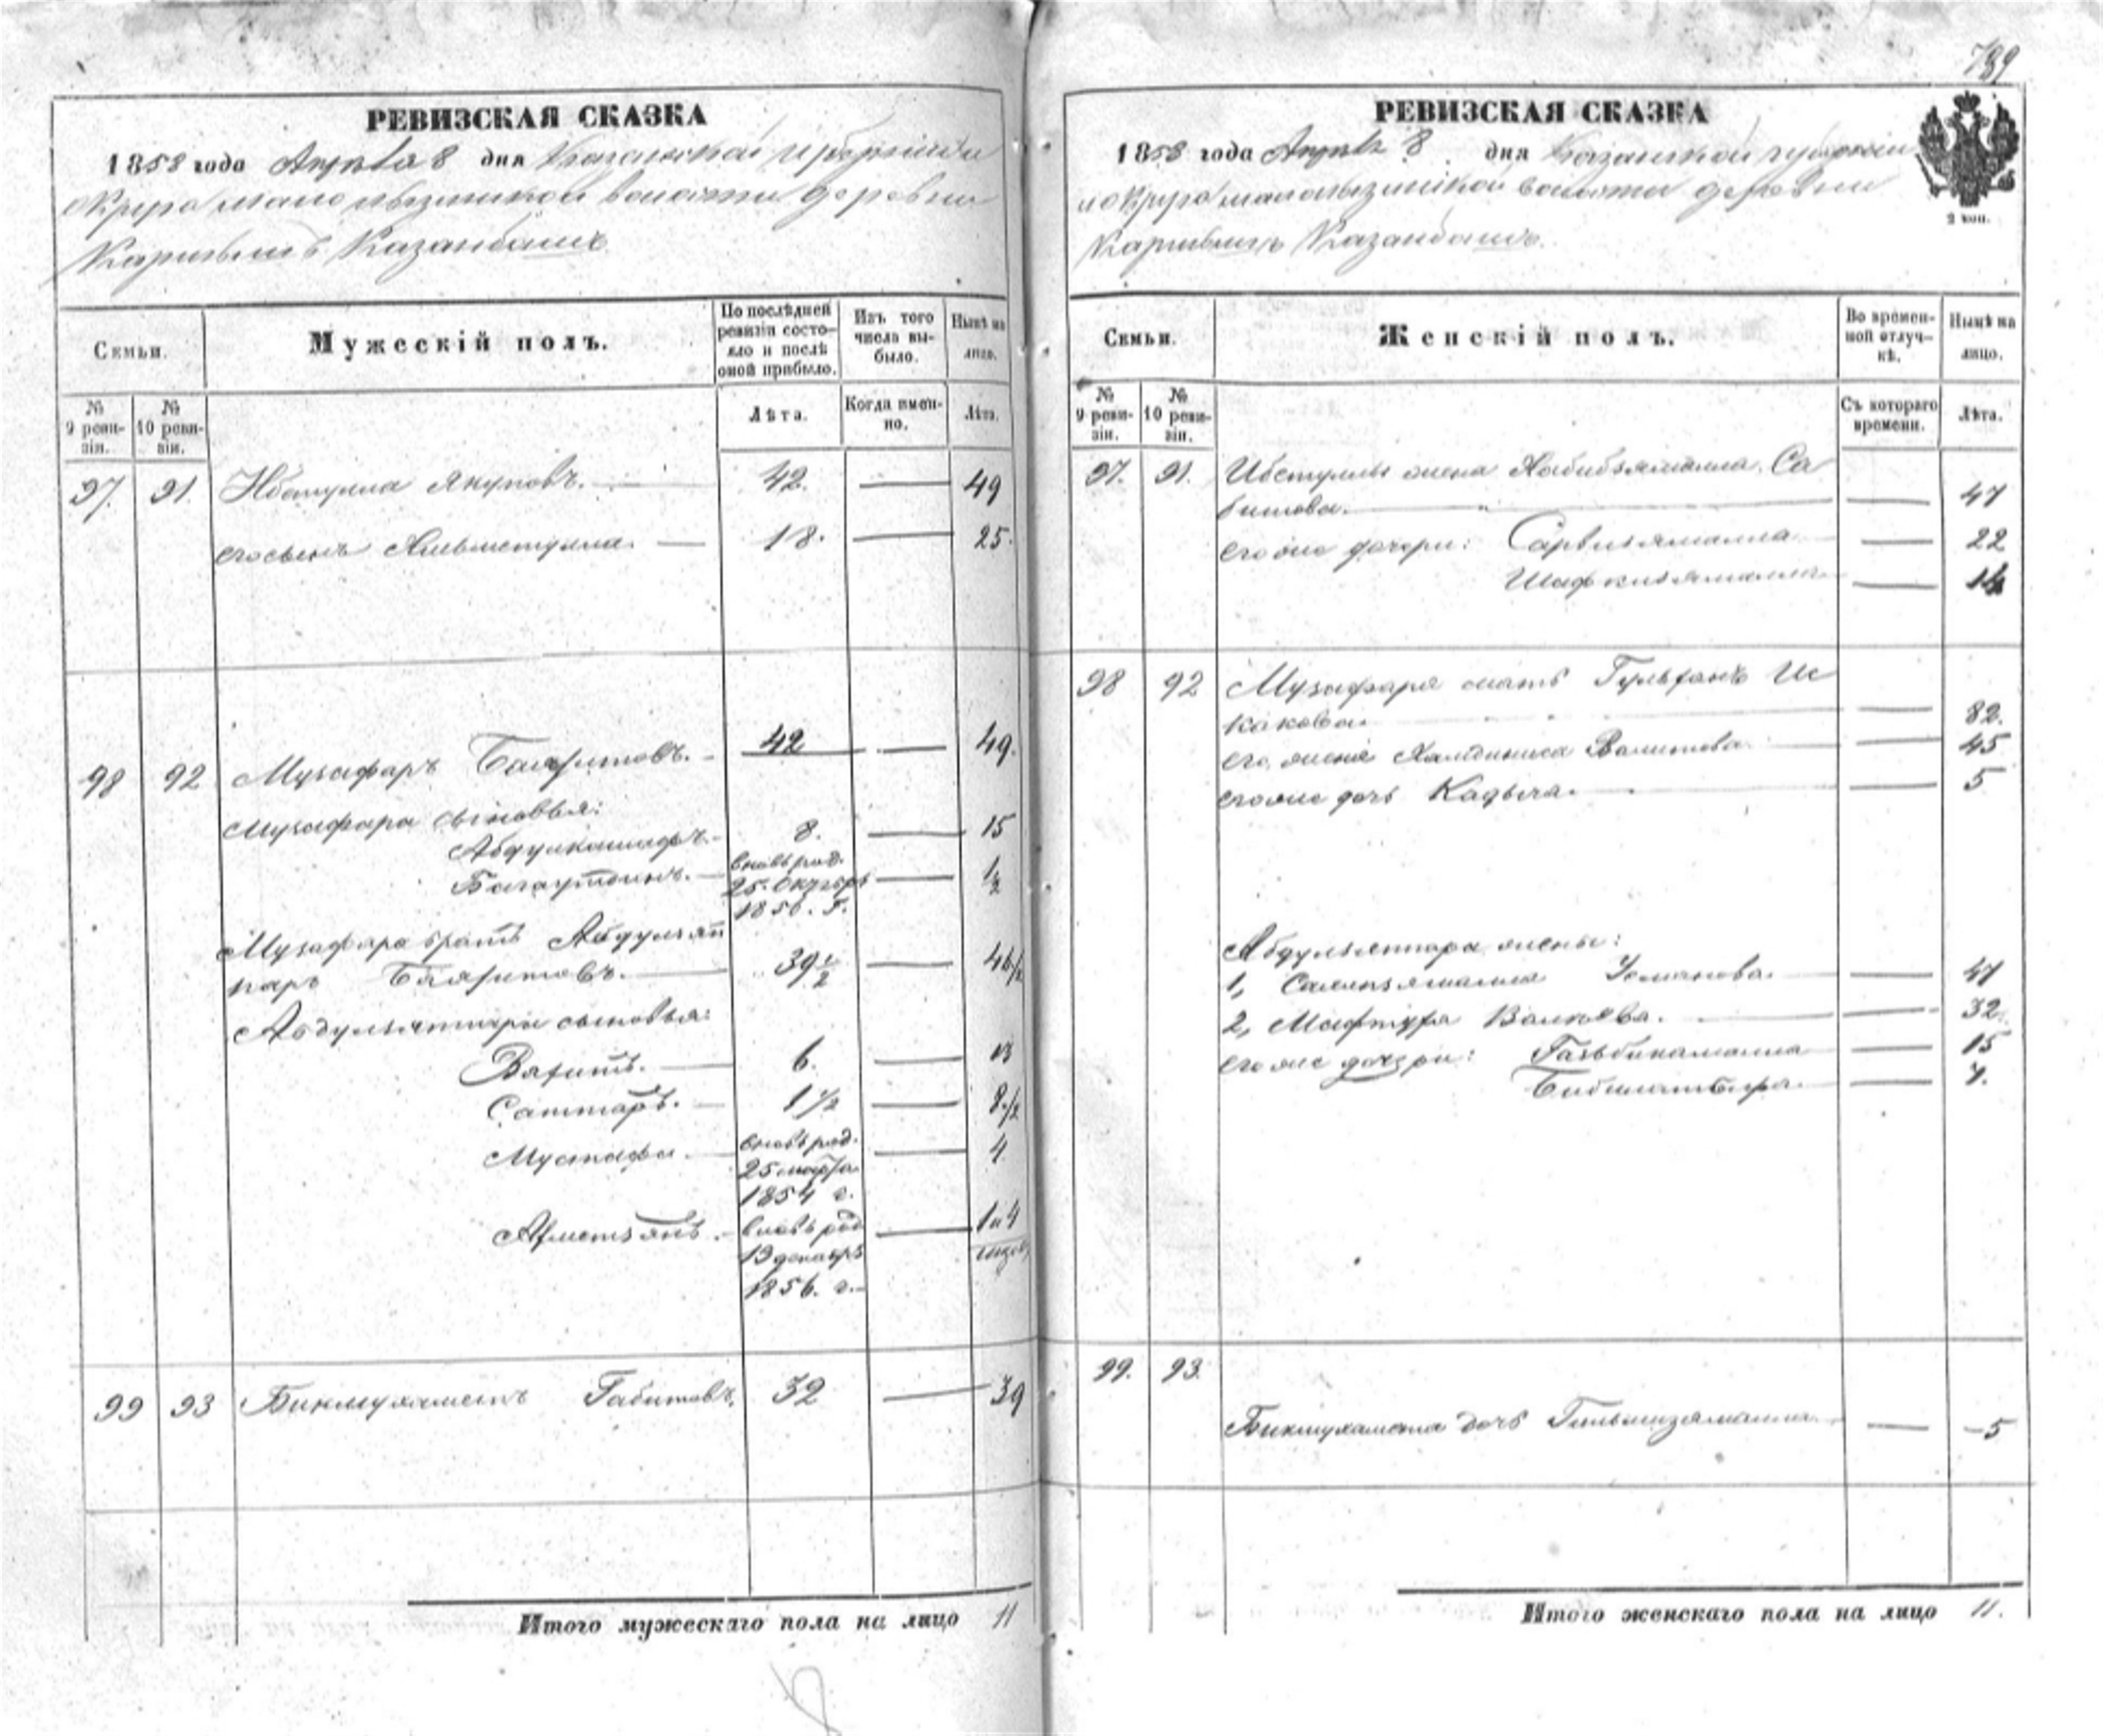 789
РЕВИЗСКАЯ СКАЗКА
1858 года Августа 8 дня Казанской губернии и
округа мало волости деревни
Казанбашъ
Семьи.
Мужескій полъ.
По послѣдней ревизіи состояло и послѣ оной прибыло.
Изъ того числа выбыло.
Нынѣ на лицо.
№ 9 ревизіи.
№ 10 ревизіи.
Лѣта.
Когда именно.
Лѣта.
97. 91. Ибетулла Якуповъ. 42. — 49
его сынъ 18. — 25.
98 92 Музафаръ Баязитовъ. 42 — 49.
Музафара сыновья:
Абдулкашафъ. 8. — 15
Багаутдинъ. вновь род. 25. Октября 1856. г. — 1½
Музафара братъ Абдулзяп
паръ Баязитовъ. 39½ — 46½
Абдулзяппара сыновья:
Вазитъ. 6. — 13
Саттаръ. 1½ — 8½
Мустафа. вновь род. 25 марта 1854 г. — 4
Ахметзянъ. вновь род 13 декабря 1856. г. — 1 и 4
99 93 Бикмухаметъ Габитовъ. 32 — 39
Итого мужескаго пола на лицо 11
РЕВИЗСКАЯ СКАЗКА
1858 года Августа 8 дня Казанской губерніи
и округа мало волости деревни
Казанбашъ.
2 коп.
Семьи.
Женскій полъ.
Во временной отлучкѣ.
Нынѣ на лицо.
№ 9 ревизіи.
№ 10 ревизіи.
Съ котораго времени.
Лѣта.
97. 91. Ибетуллы жена Хабибзямалла Са
битова. — 47
его же дочери: Сарвизямалла — 22
Шафкизямалла — 14
98 92 Музафара мать Гульфанъ Ис
какова. — 82.
его жена Валитова — 45
его же дочь Кадыча. — 5
Абдулзяппара жены:
1, Салихзямалла Усманова. — 47
2, Валиева. — 32.
его же дочери: — 15
— 7.
99. 93.
Бикмухамета дочь — 5
Итого женскаго пола на лицо 11.